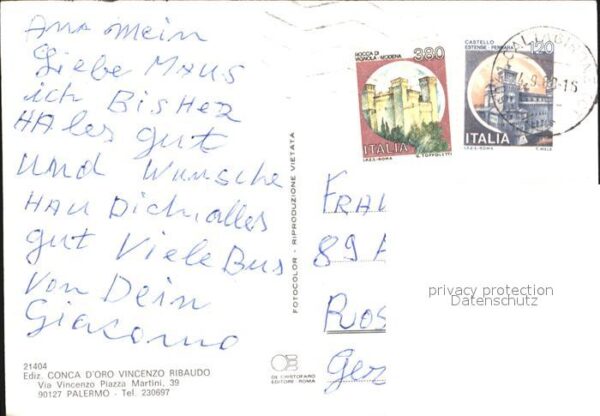 Ana mein
Liebe MAUS
ich BisHer
HAles gut
und Wunsche
HAu Dich alles
gut Viele Bus
Von Dein
Giacomo
21404
Ediz. CONCA D'ORO VINCENZO RIBAUDO
Via Vincenzo Piazza Martini, 39
90127 PALERMO - Tel. 230697
FOTOCOLOR - RIPRODUZIONE VIETATA
DE CRISTOFARO
EDITORE ROMA
ROCCA DI
VIGNOLA - MODENA
380
ITALIA
I.P.Z.S. - ROMA
CASTELLO
ESTENSE - FERRARA
120
ITALIA
I.P.Z.S. - ROMA
FRAU
89
privacy protection
Datenschutz
Ger